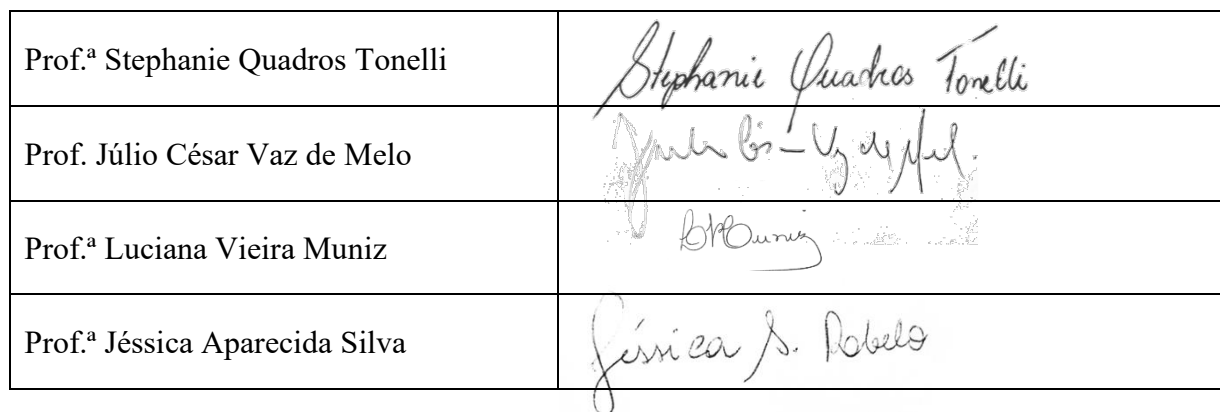 Prof.ª Stephanie Quadros Tonelli
Stephanie Quadros Tonelli
Prof. Júlio César Vaz de Melo
Prof.ª Luciana Vieira Muniz
Prof.ª Jéssica Aparecida Silva
Jéssica S. Rabelo